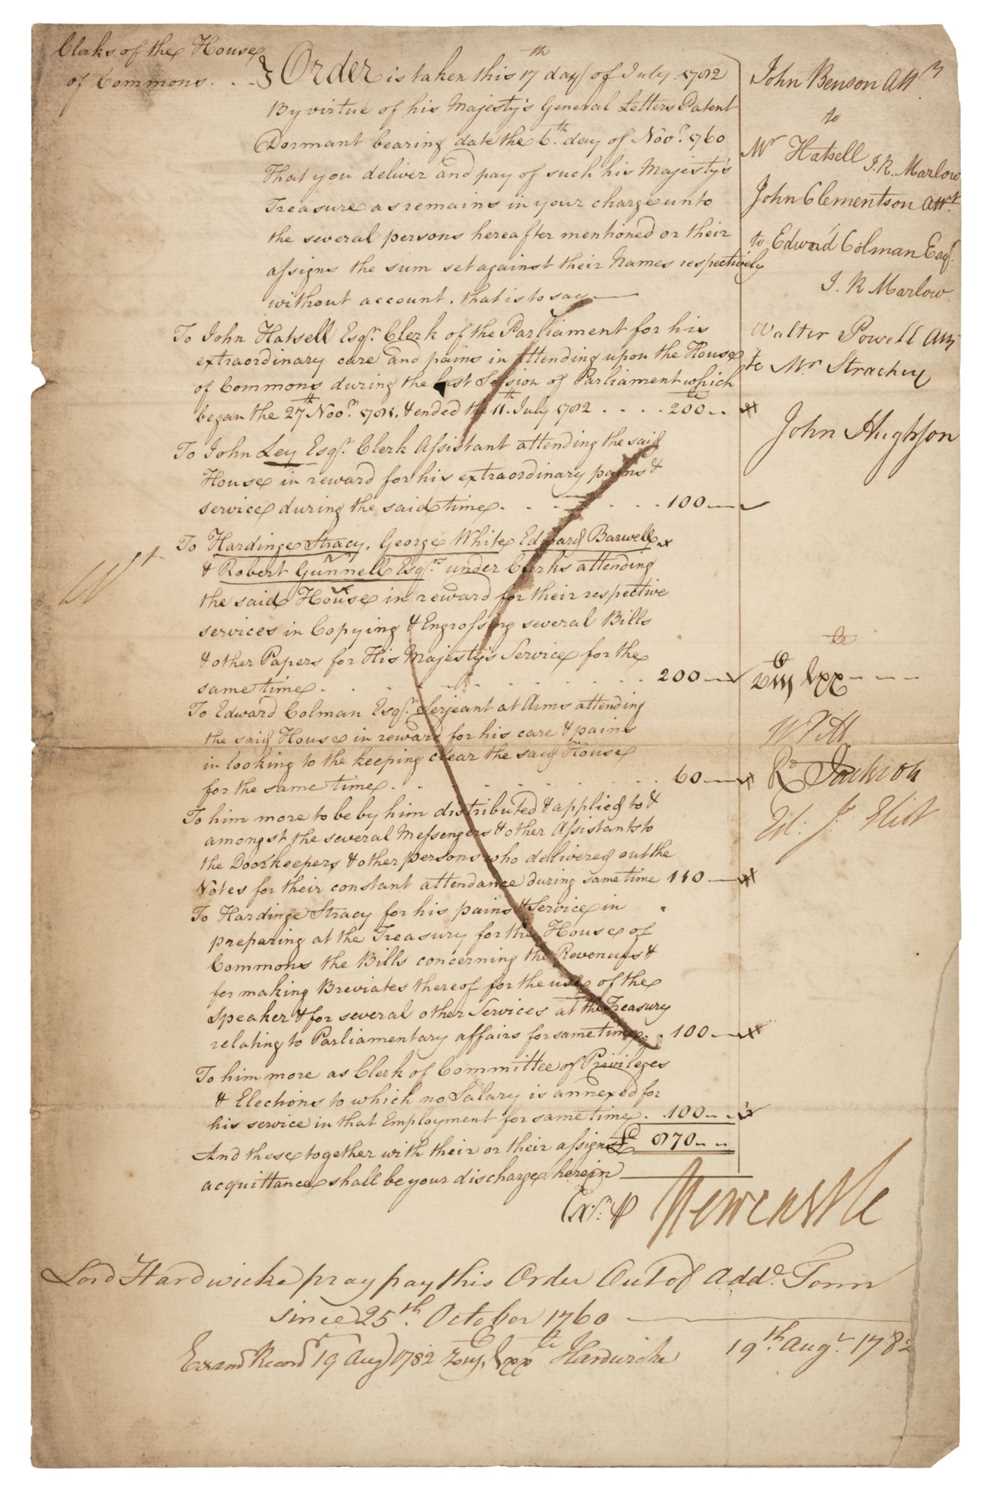 Clerks of the House
of Commons . . }
Order is taken this 17th day of July 1782
By virtue of his Majesty's General Letters Patent
Dormant bearing date the 6th day of Novr. 1760
That you deliver and pay of such his Majesty's
Treasure as remains in your charge unto
the several persons hereafter mentioned or their
assigns the sum set against their Names respectively
without account, that is to say
To John Hatsell Esqr. Clerk of the Parliament for his
extraordinary care and pains in attending upon the House
of Commons during the last Session of Parliament which
began the 27th Novr. 1781, & ended the 11th July 1782 . . . . 200 . .
To John Ley Esqr. Clerk Assistant attending the said
House in reward for his extraordinary pains &
service during the said time . . . . . . 100
To Hardinge Stracy, George White Edward Barwell
& Robert Gunnell Esqrs. under Clerks attending
the said House in reward for their respective
services in Copying & Engrossing several Bills
& other Papers for His Majesty's Service for the
same time . . . . . . . . 200
To Edward Colman Esqr. Serjeant at Arms attending
the said House in reward for his care & pains
in looking to the keeping clear the said House
for the same time . . . . . . . 60
To him more to be by him distributed & applied to &
amongst the several Messengers & other Assistants to
the Doorkeepers & other persons who delivered out the
Votes for their constant attendance during same time 110
To Hardinge Stracy for his pains & Service in
preparing at the Treasury for the House of
Commons the Bills concerning the Revenues &
for making Breviates thereof for the use of the
Speaker & for several other Services at the Treasury
relating to Parliamentary affairs for same time . 100
To him more as Clerk of Committee of Privileges
& Elections to which no Salary is annexed for
his service in that Employment for same time . 100 . .
£ 870 . . . .
And these together with their or their assigns
acquittances shall be your discharge herein
Newcastle
John Benson Attr
to
Mr Hatsell J.R. Marlow
John Clementson Attr.
to Edward Colman Esqr.
J. R Marlow
Walter Powell Atty
to Mr Strachey
John Hughson
W Pitt
Rd Jackson
Lord Hardwicke pray pay this Order Out of Addl. Tonn
since 25th October 1760
19th Augt. 1782
19 Augt 1782 Hardwicke